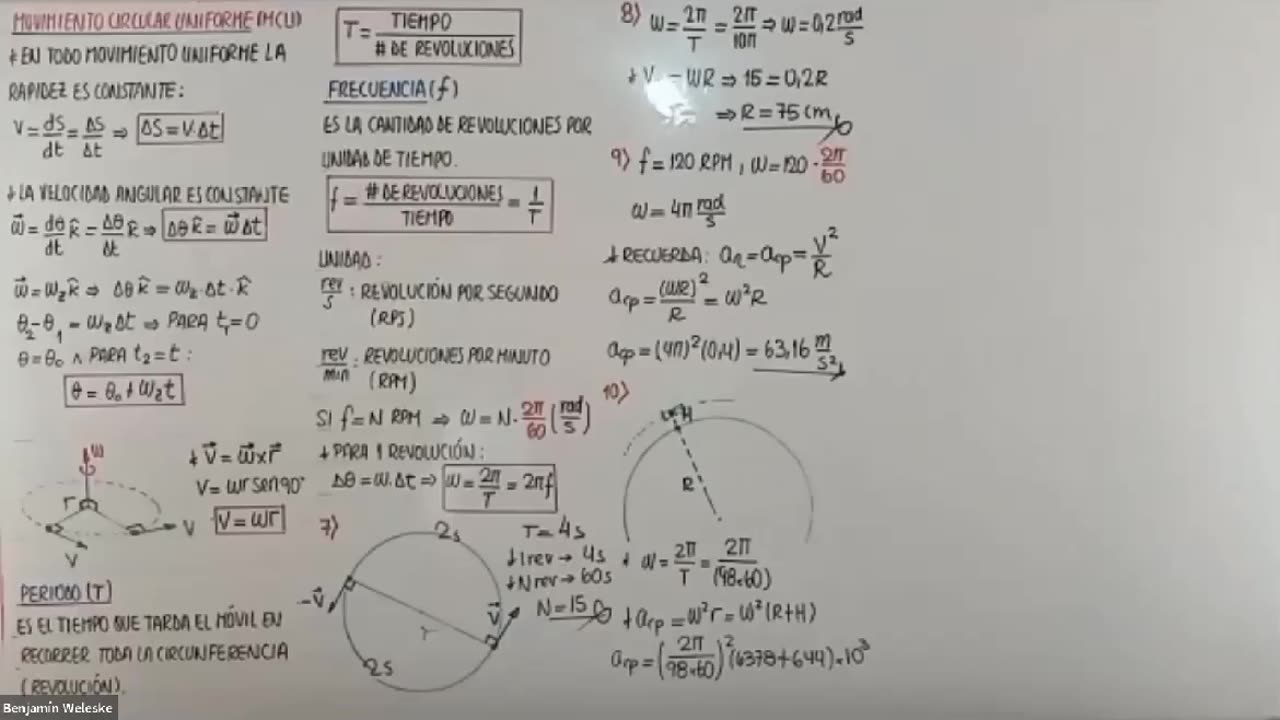 MOVIMIENTO CIRCULAR UNIFORME (MCU)
* EN TODO MOVIMIENTO UNIFORME LA
RAPIDEZ ES CONSTANTE:
V = dS/dt = ΔS/Δt ⇒ ΔS = V.Δt
* LA VELOCIDAD ANGULAR ES CONSTANTE
ω⃗ = dθ/dt k̂ = Δθ/Δt k̂ ⇒ Δθ k̂ = ω⃗ Δt
ω⃗ = ω_z k̂ ⇒ Δθ k̂ = ω_z · Δt · k̂
θ₂ - θ₁ = ω_z Δt ⇒ PARA t₁ = 0
θ = θ₀ ∧ PARA t₂ = t :
θ = θ₀ + ω_z t
ω
r
V
V
* V⃗ = ω⃗ x r⃗
V = ωr sen90°
V = ωr
PERIODO (T)
ES EL TIEMPO QUE TARDA EL MÓVIL EN
RECORRER TODA LA CIRCUNFERENCIA
(REVOLUCIÓN).
T = TIEMPO / # DE REVOLUCIONES
FRECUENCIA (f)
ES LA CANTIDAD DE REVOLUCIONES POR
UNIDAD DE TIEMPO.
f = # DE REVOLUCIONES / TIEMPO = 1/T
UNIDAD :
rev/s : REVOLUCIÓN POR SEGUNDO
(RPS)
rev/min : REVOLUCIONES POR MINUTO
(RPM)
SI f = N RPM ⇒ ω = N · 2π/60 (rad/s)
* PARA 1 REVOLUCIÓN :
Δθ = ω.Δt ⇒ ω = 2π/T = 2πf
7)
2s
-V⃗
V⃗
r
2s
T = 4s
* 1rev → 4s
* N rev → 60s
N = 15
8) ω = 2π/T = 2π/10π ⇒ ω = 0,2 rad/s
* V = ωR ⇒ 15 = 0,2R
⇒ R = 75 cm
9) f = 120 RPM , ω = 120 · 2π/60
ω = 4π rad/s
* RECUERDA: a_n = a_cp = V²/R
a_cp = (ωR)²/R = ω²R
a_cp = (4π)²(0,4) = 63,16 m/s²
10)
H
R
* ω = 2π/T = 2π/(98×60)
* a_cp = ω²r = ω²(R+H)
a_cp = (2π/98×60)² (6378+644)×10³
Benjamín Weleske